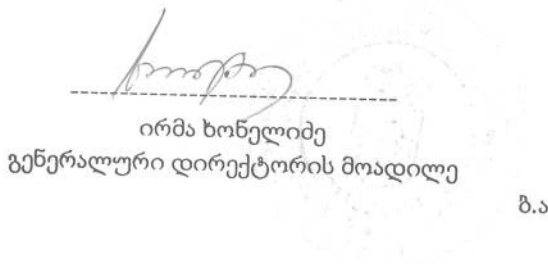 ირმა ხონელიძე
გენერალური დირექტორის მოადილე
გ.ა